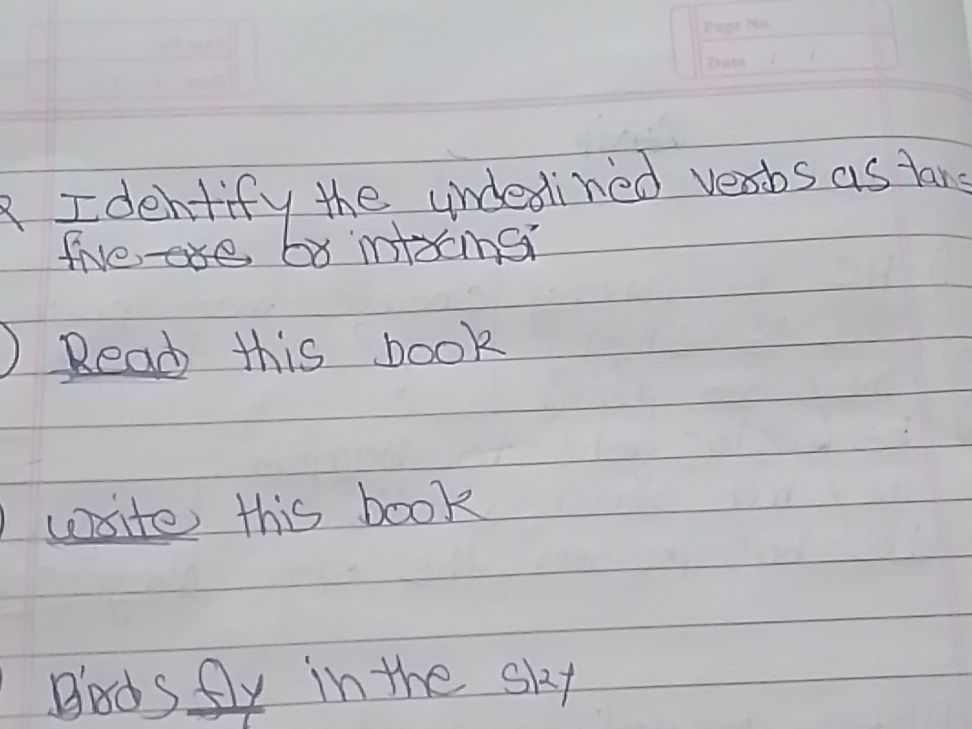 Page No.
Date / /
Identify the underlined verbs as tans
five are or intransi
Read this book
write this book
Birds fly in the sky